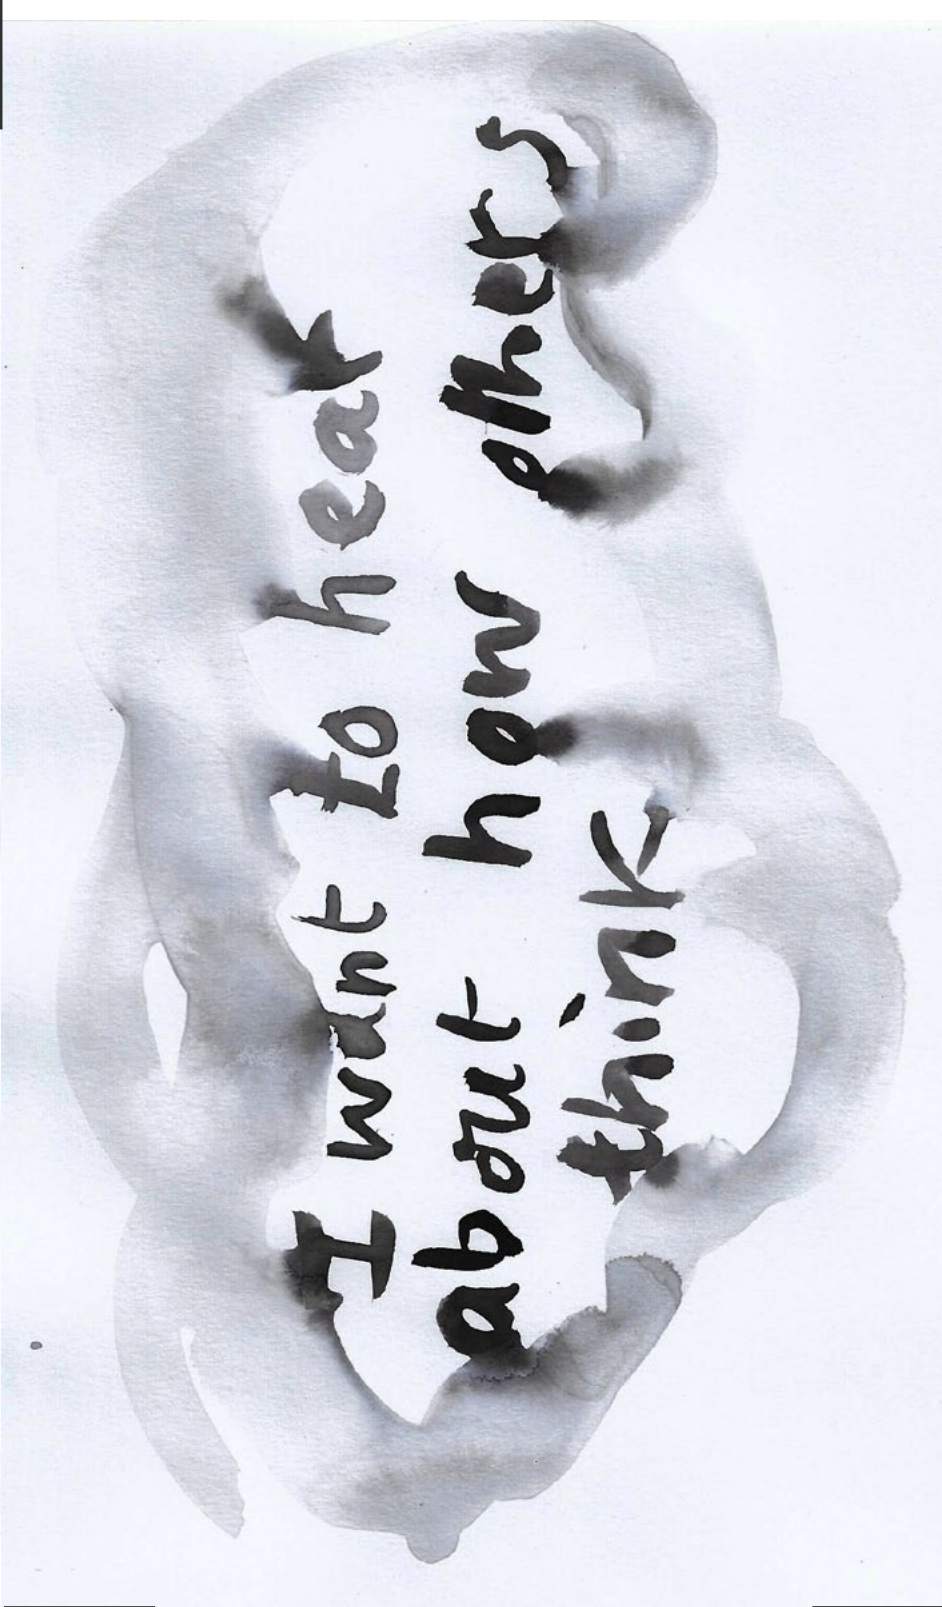 I want to hear
about how others
think